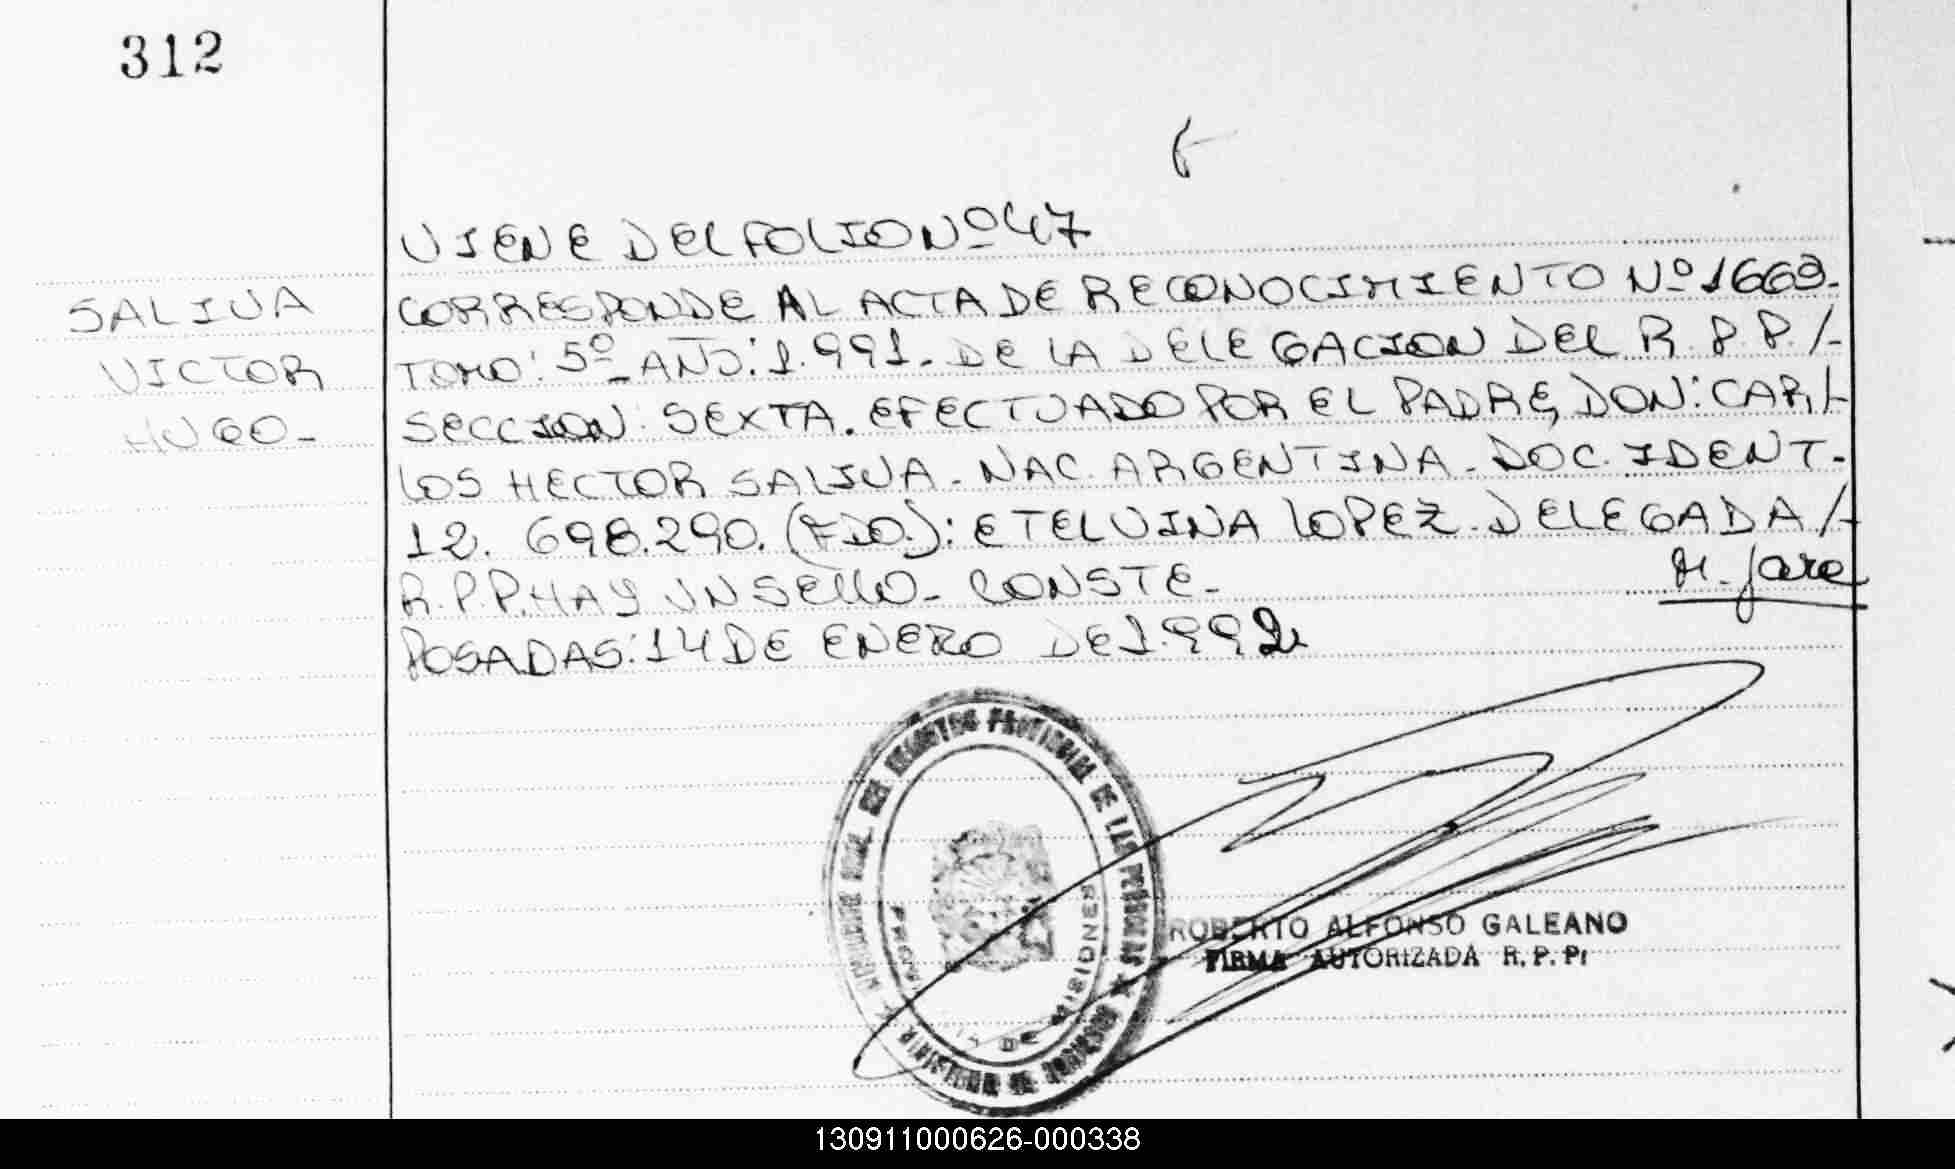 312
VIENE DEL FOLIO Nº 47
SALIVA
VICTOR
HUGO-
CORRESPONDE AL ACTA DE RECONOCIMIENTO Nº 1669-
TOMO: 5º- AÑO: 1.991- DE LA DELEGACION DEL R.P.P./-
SECCION: SEXTA. EFECTUADO POR EL PADRE, DON: CAR/-
LOS HECTOR SALIVA- NAC. ARGENTINA- DOC. IDENT-
12.698.290. (FDO.): ETELVINA LOPEZ- DELEGADA/-
R.P.P. HAY UN SELLO- CONSTE-
POSADAS: 14 DE ENERO DE 1.992
REGISTRO PROVINCIAL DE LAS PERSONAS
MISIONES
ROBERTO ALFONSO GALEANO
FIRMA AUTORIZADA R.P.P.
130911000626-000338